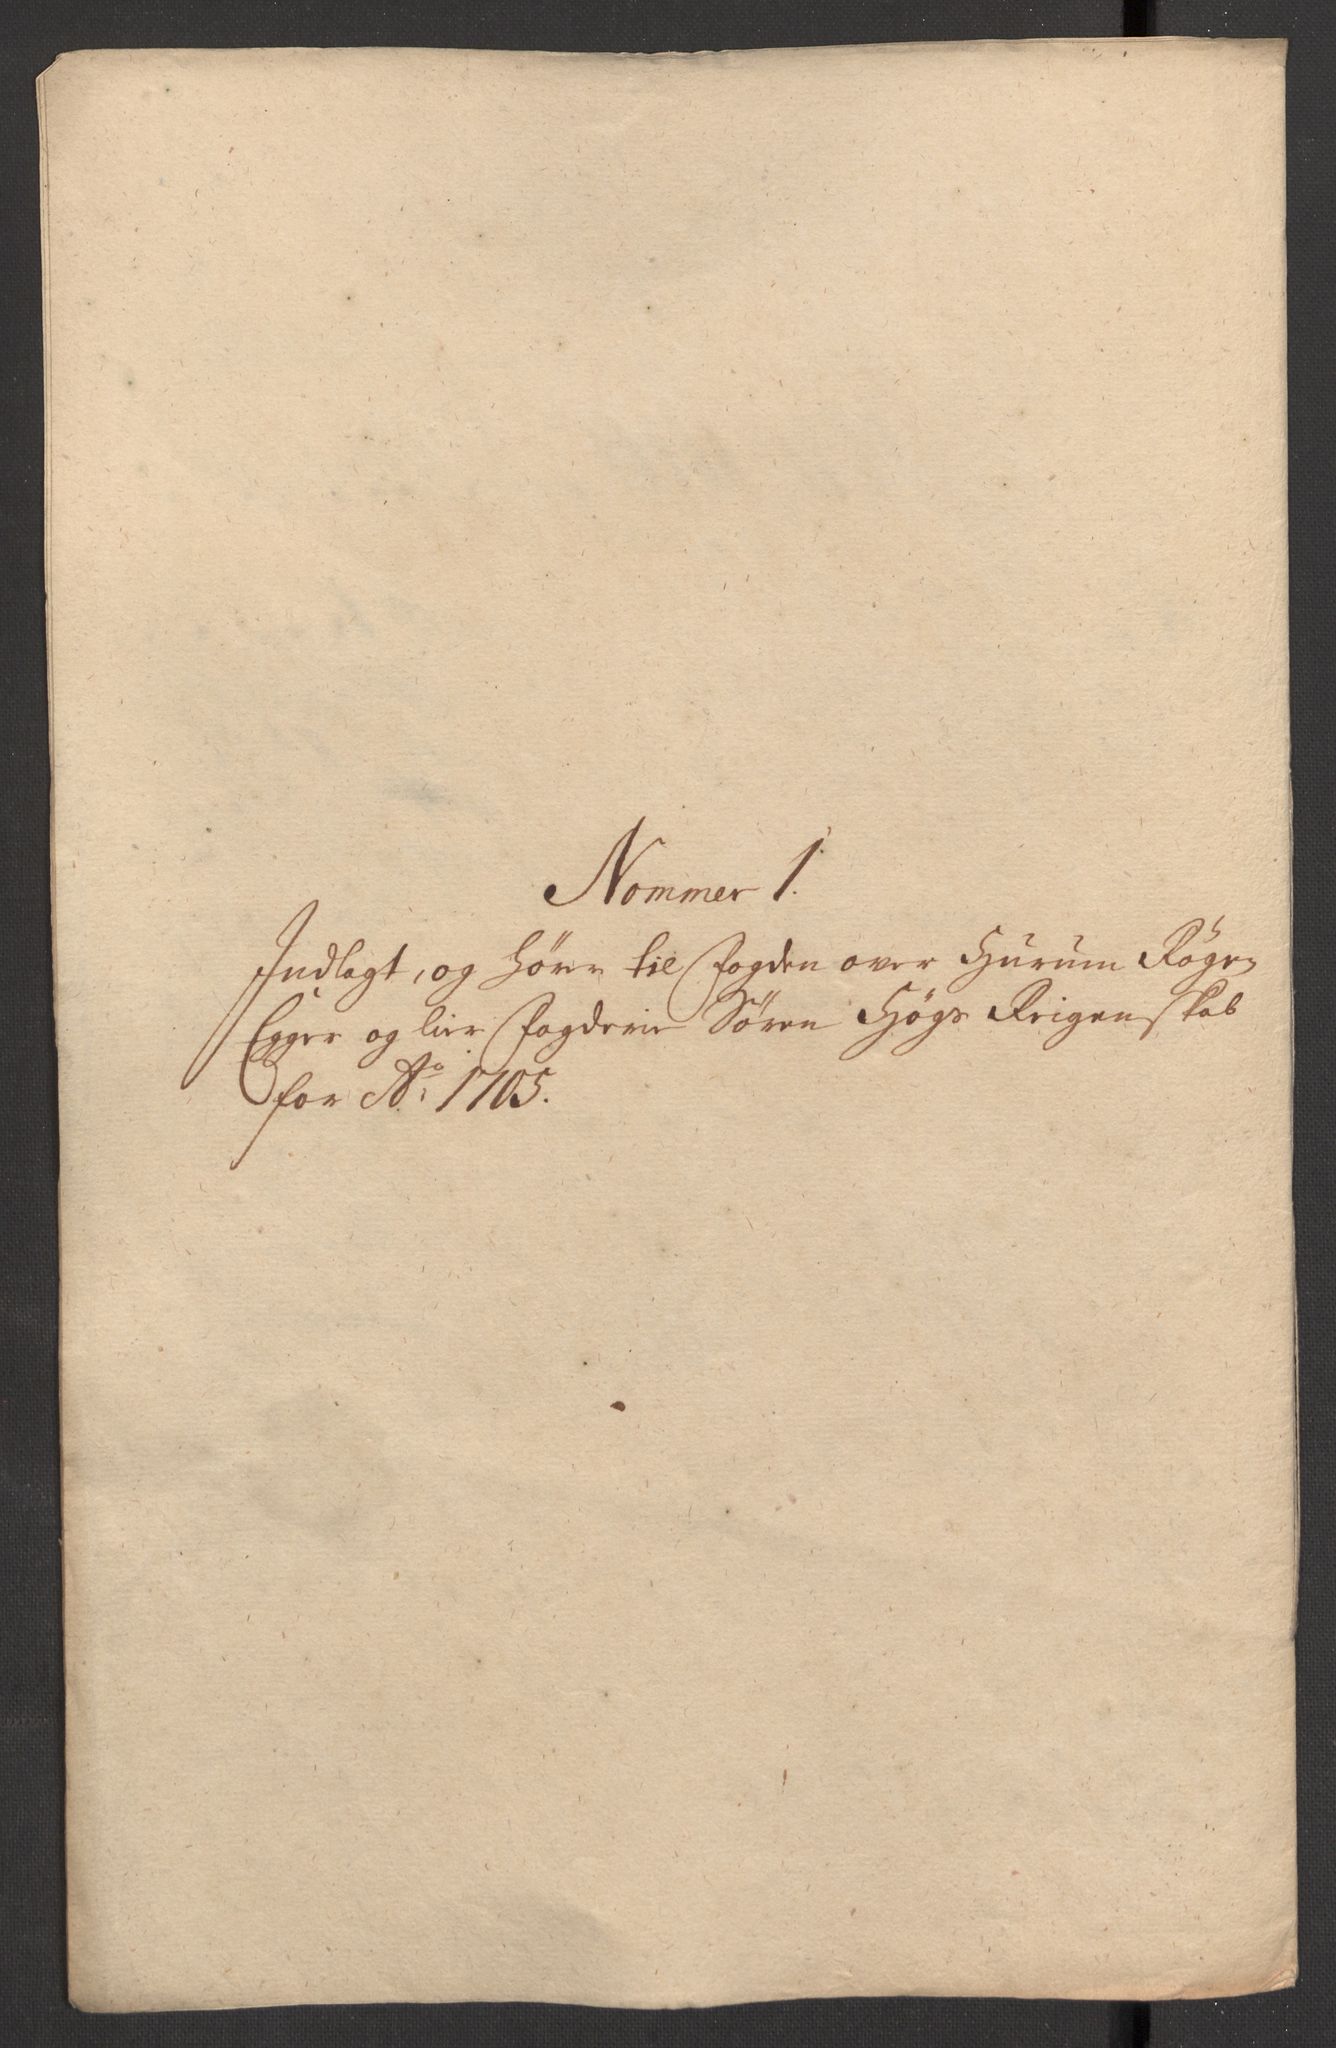 Nommer 1.
Indlagt, og hörer til Fogden over Hurum Rögen
Egger og lier Fogderie Sören Högs Reigenskab
for Ao. 1705.